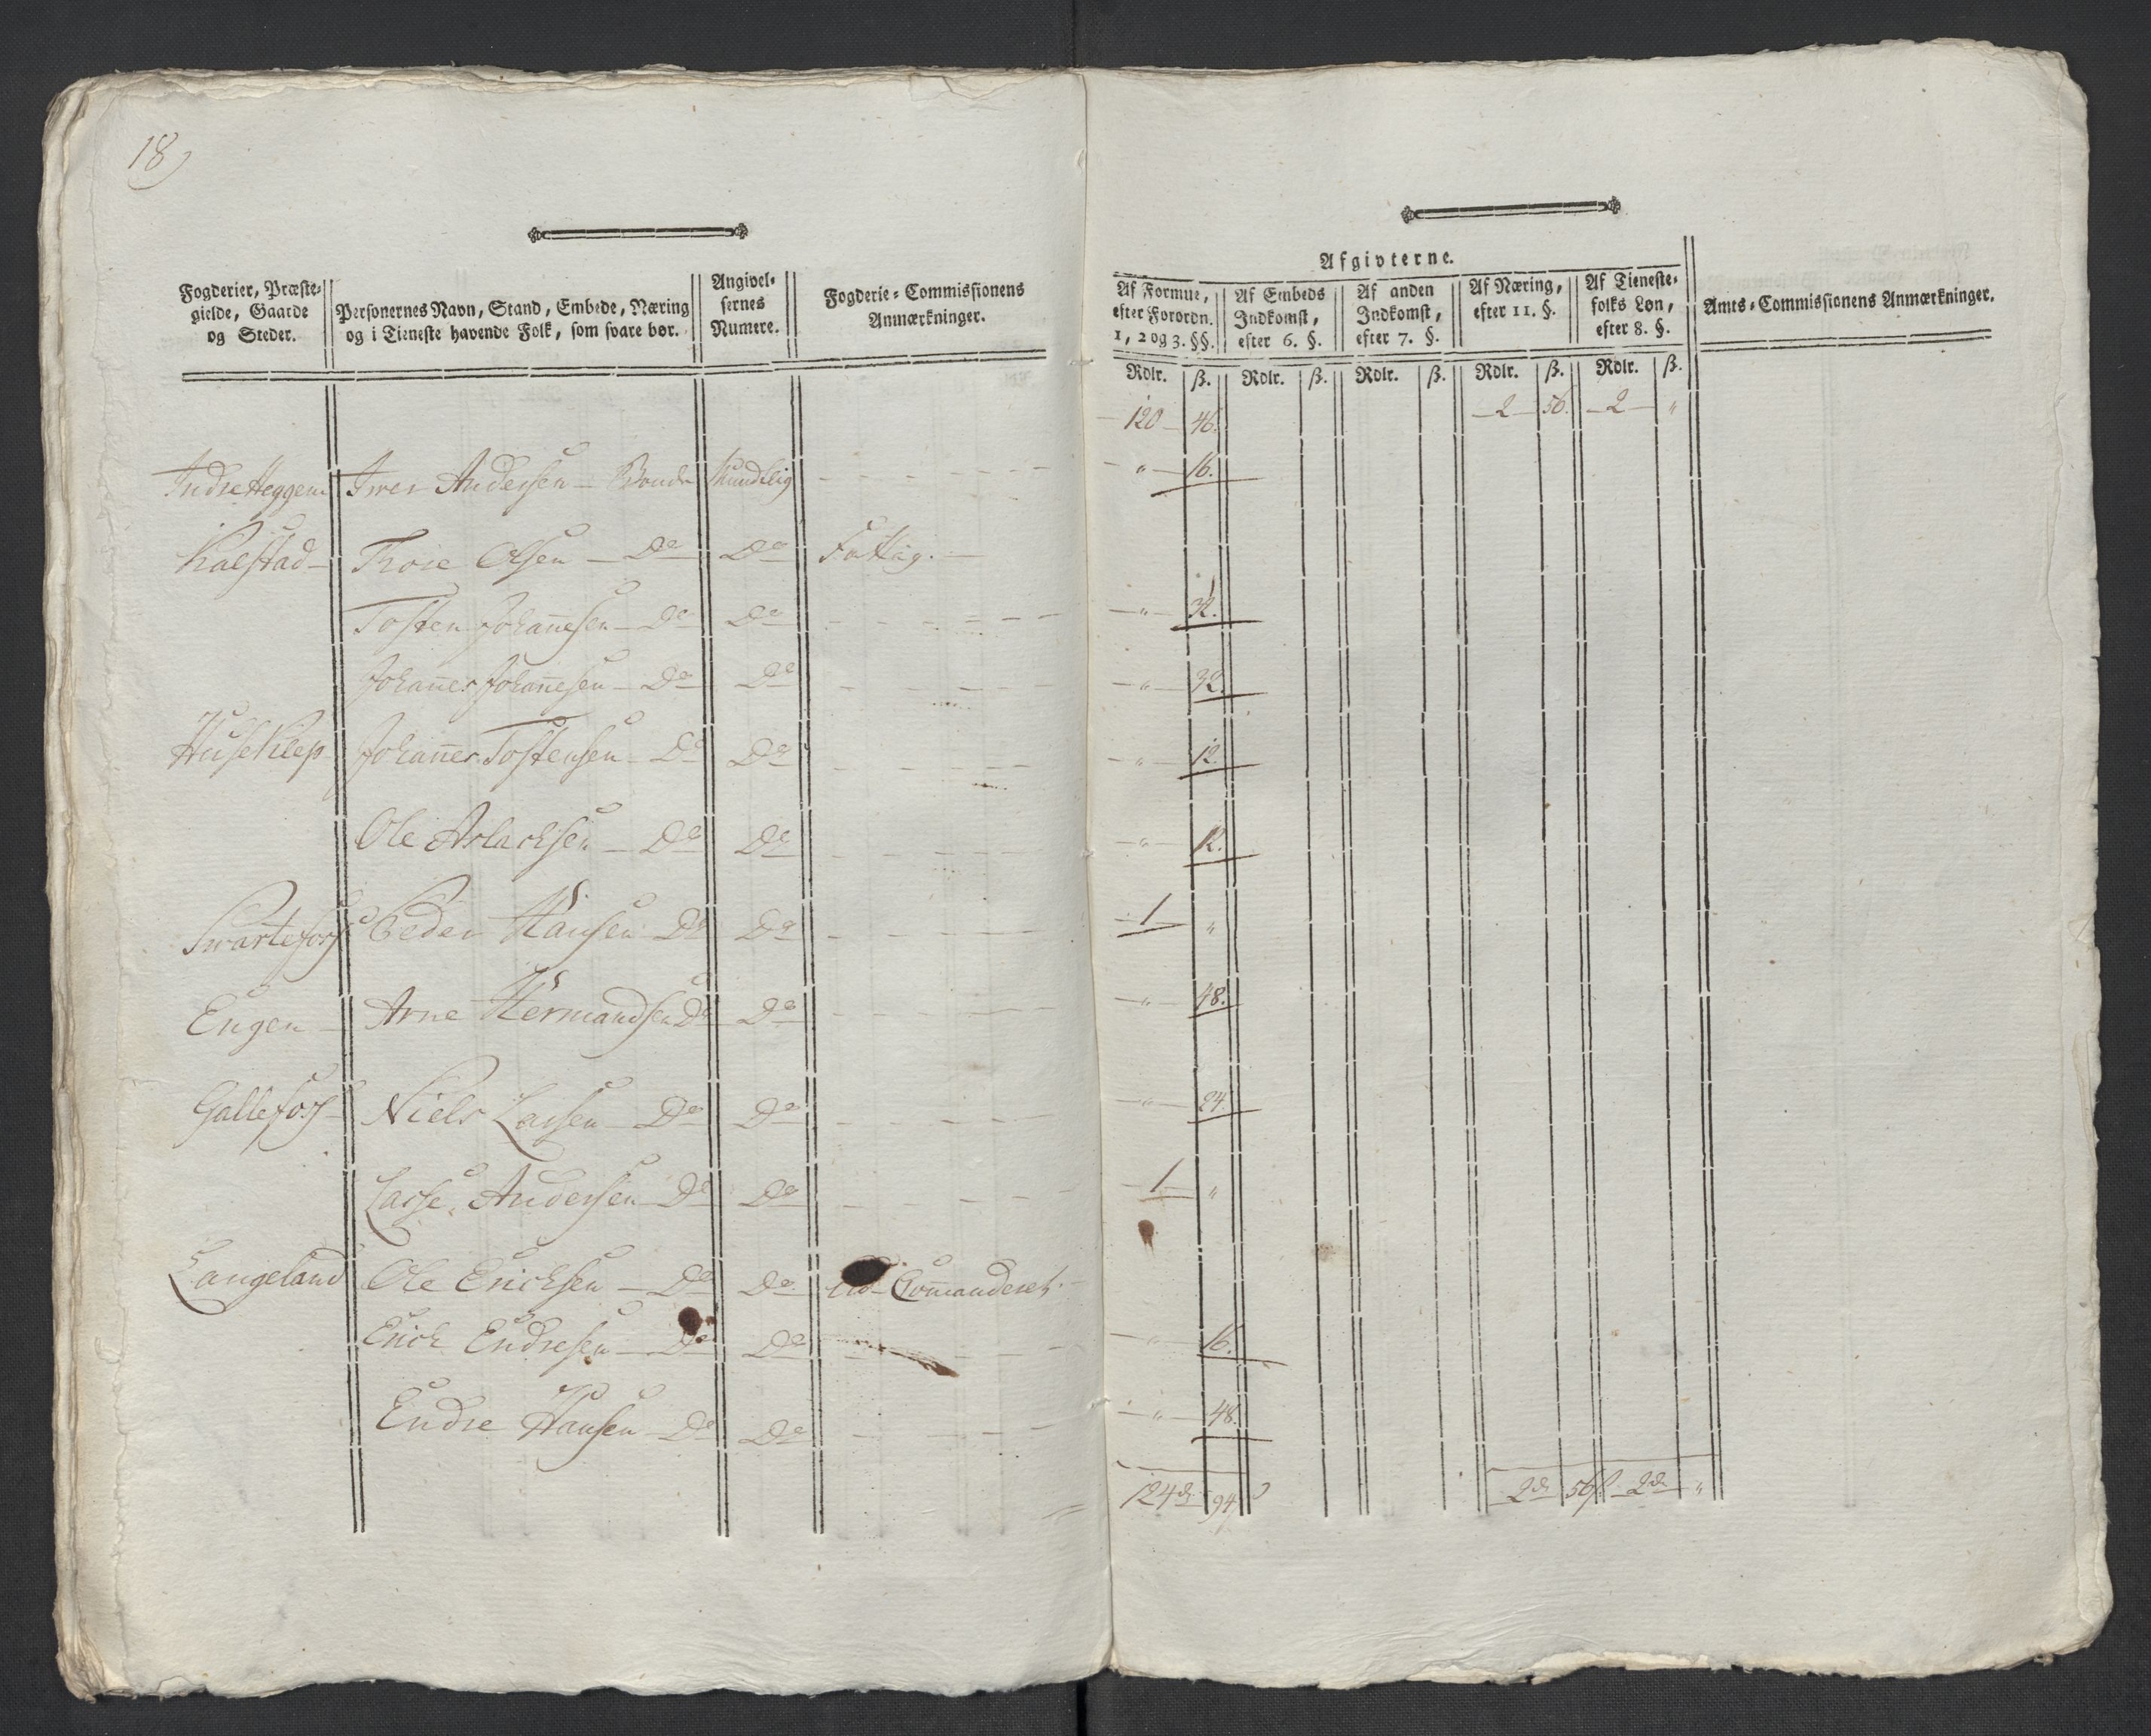 18)
Fogderier, Præste-
gielde, Gaarde
og Steder.
Personernes Navn, Stand, Embede, Næring
og i Tieneste havende Folk, som svare bør.
Angivel-
sernes
Numere.
Fogderie-Commissionens
Anmærkninger.
Afgivterne.
Af Formue,
efter Forordn.
1, 2 og 3. §§.
Af Embeds
Indkomst,
efter 6. §.
Af anden
Indkomst,
efter 7. §.
Af Næring,
efter 11. §.
Af Tieneste-
folks Løn,
efter 8. §.
Amts-Commissionens Anmærkninger.
Rdlr. ß. Rdlr. ß. Rdlr. ß. Rdlr. ß. Rdlr. ß.
120 46. 2 56. 2 "
Indre Heggem Iver Andersen Bonde Mundtlig " 16.
Kalstad Thore Olsen Do Do Fattig.
Tosten Johan̅esen Do Do " 32.
Johan̅es Johan̅esen Do Do " 32.
Huseklep Johan̅es Tostensen Do Do " 12.
Ole Aslachsen Do Do " 12.
Swartefoss Peder Hansen Do Do 1 "
Engen Arne Hermandsen Do Do " 48.
Gallefoss Niels Larsen Do Do " 24.
Lasse Andersen Do Do 1 "
Langeland Ole Erichsen Do Do Com̅anderet
Erich Endresen Do Do " 16.
Endre Hansen Do Do " 48.
124 94 2 56 2 "